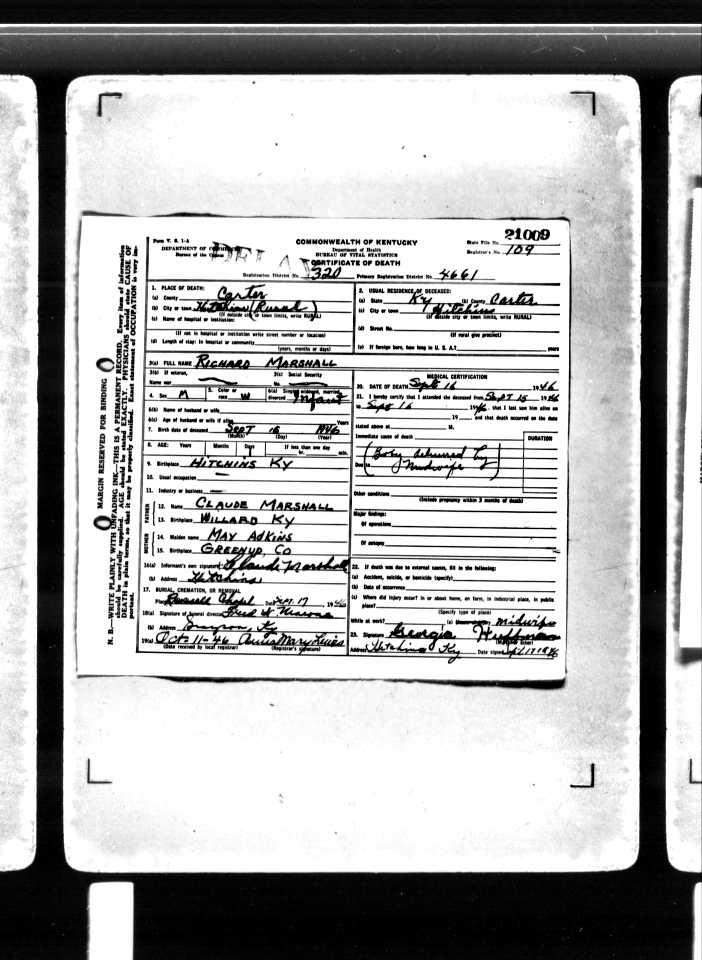 N. B.—WRITE PLAINLY WITH UNFADING INK—THIS IS A PERMANENT RECORD. Every item of information
should be carefully supplied. AGE should be stated EXACTLY. PHYSICIANS should state CAUSE OF
DEATH in plain terms, so that it may be properly classified. Exact statement of OCCUPATION is very important.
MARGIN RESERVED FOR BINDING
Form V. S. 1-A
DEPARTMENT OF COMMERCE
Bureau of the Census
COMMONWEALTH OF KENTUCKY
Department of Health
BUREAU OF VITAL STATISTICS
CERTIFICATE OF DEATH
State File No. 21009
Registrar's No. 109
Registration District No. 320 Primary Registration District No. 4661
1. PLACE OF DEATH:
(a) County Carter
(b) City or town Hitchins (Rural)
(If outside city or town limits, write RURAL)
(c) Name of hospital or institution:
(If not in hospital or institution write street number or location)
(d) Length of stay: In hospital or community
(years, months or days)
2. USUAL RESIDENCE OF DECEASED:
(a) State Ky (b) County Carter
(c) City or town Hitchins
(If outside city or town limits, write RURAL)
(d) Street No.
(If rural give precinct)
(e) If foreign born, how long in U. S. A.? years
3(a) FULL NAME RICHARD MARSHALL
3(b) If veteran, 3(c) Social Security
Name war No.
4. Sex M 5. Color or race W 6(a) Single, widowed, married, divorced Infant
6(b) Name of husband or wife
6(c) Age of husband or wife if alive Years
7. Birth date of deceased SEPT 15 1946
(Month) (Day) (Year)
8. AGE: Years Months Days If less than one day
1 hr. min.
9. Birthplace HITCHINS KY
10. Usual occupation —
11. Industry or business —
FATHER
12. Name CLAUDE MARSHALL
13. Birthplace WILLARD KY
MOTHER
14. Maiden name MAY ADKINS
15. Birthplace GREENUP, CO
16(a) Informant's own signature Claude Marshall
(b) Address Hitchins
17. BURIAL, CREMATION, OR REMOVAL
Place Russell Chapel Date Sept. 17, 1946
18(a) Signature of funeral director Fred
(b) Address Grayson, Ky
19(a) Oct-11-46 Mary Lewis
(Date received by local registrar) (Registrar's signature)
MEDICAL CERTIFICATION
20. DATE OF DEATH Sept 16 1946
21. I hereby certify that I attended the deceased from SEPT 15 1946
to Sept 16 1946, that I last saw him alive on
19 and that death occurred on the date
stated above at M.
Immediate cause of death DURATION
(Baby delivered by
Due to Midwife)
Other conditions
(Include pregnancy within 3 months of death)
Major findings:
Of operations
Of autopsy
22. If death was due to external causes, fill in the following:
(a) Accident, suicide, or homicide (specify)
(b) Date of occurrence
(c) Where did injury occur? In or about home, on farm, in industrial place, in public
place?
(Specify type of place)
While at work? (e) midwife
23. Signature Georgia Huffman
Address Hitchins Ky Date signed Sept 17 1946